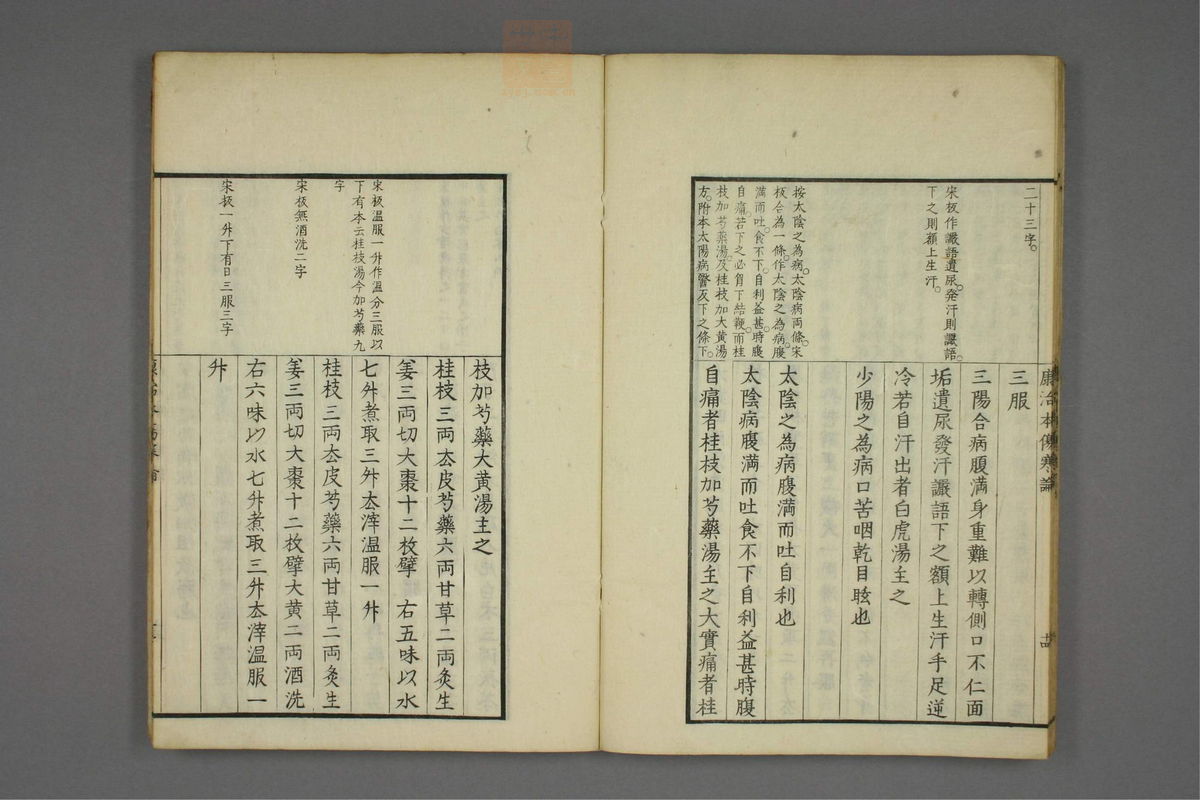 康治本傷寒論
二十三字。
宋板作讝語遺尿。發汗則讝語。
下之則額上生汗。
按太陰之為病。太陰病両條。宋
板合為一條。作太陰之為病腹
満而吐。食不下。自利益甚。時腹
自痛。若下之必胷下結鞕。而桂
枝加芍藥湯。及桂枝加大黄湯
方。附本太陽病醫反下之條下。
三服
三陽合病腹満身重難以轉側口不仁面
垢遺尿發汗讝語下之額上生汗手足逆
冷若自汗出者白虎湯主之
少陽之為病口苦咽乾目眩也
太陰之為病腹満而吐自利也
太陰病腹満而吐食不下自利益甚時腹
自痛者桂枝加芍藥湯主之大實痛者桂
宋板温服一升作温分三服以
下有本云桂枝湯今加芍藥九
字
宋板無酒洗二字
宋板一升下有日三服三字
枝加芍藥大黄湯主之
桂枝三両去皮芍藥六両甘草二両炙生
姜三両切大棗十二枚擘 右五味以水
七升煮取三升去滓温服一升
桂枝三両去皮芍藥六両甘草二両炙生
姜三両切大棗十二枚擘大黄二両酒洗
右六味以水七升煮取三升去滓温服一
升